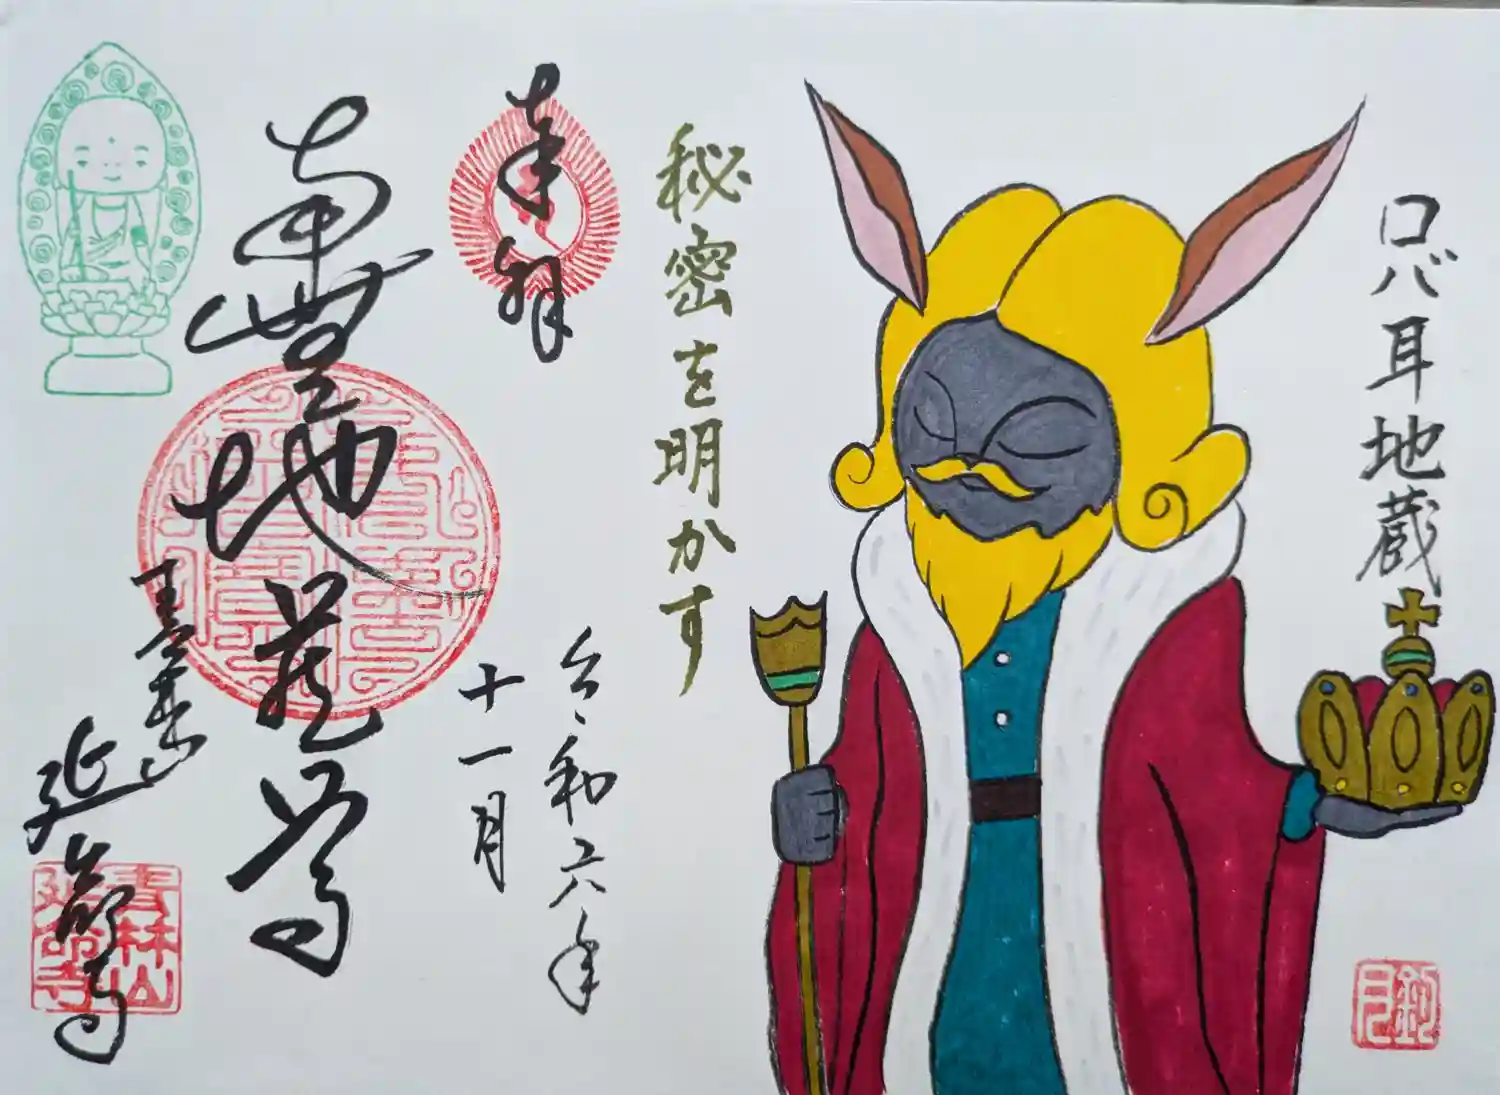 ロバ耳地蔵
秘密を明かす
奉拝
令和六年
十一月
南無地蔵尊
青林山
延命寺
青林山
延命寺